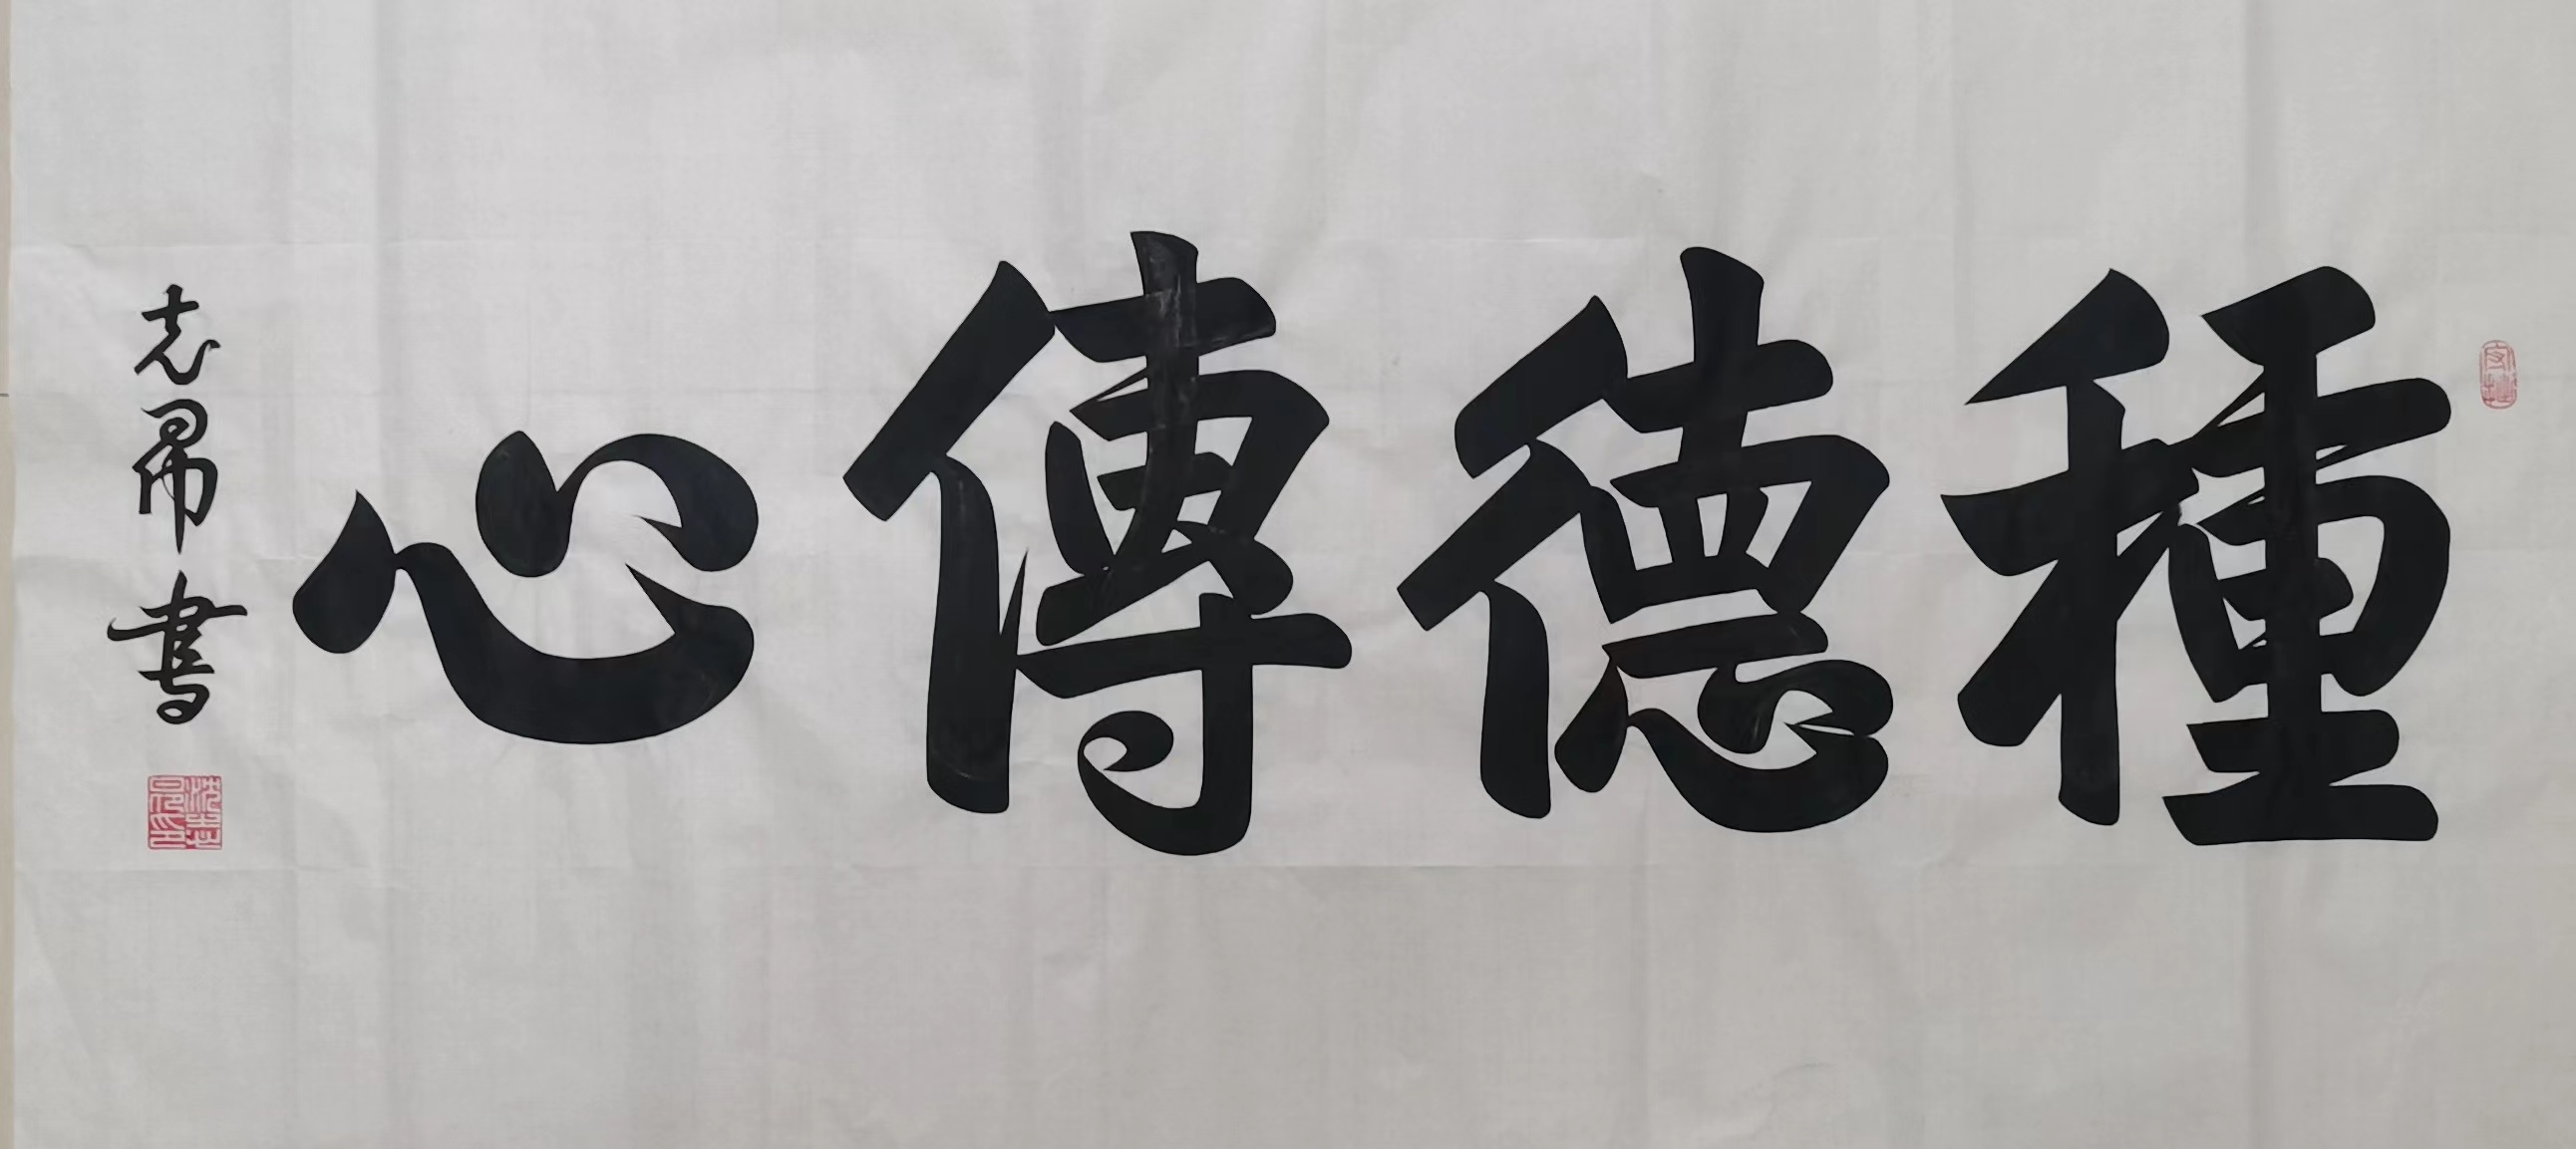 種德傳心
志昂書